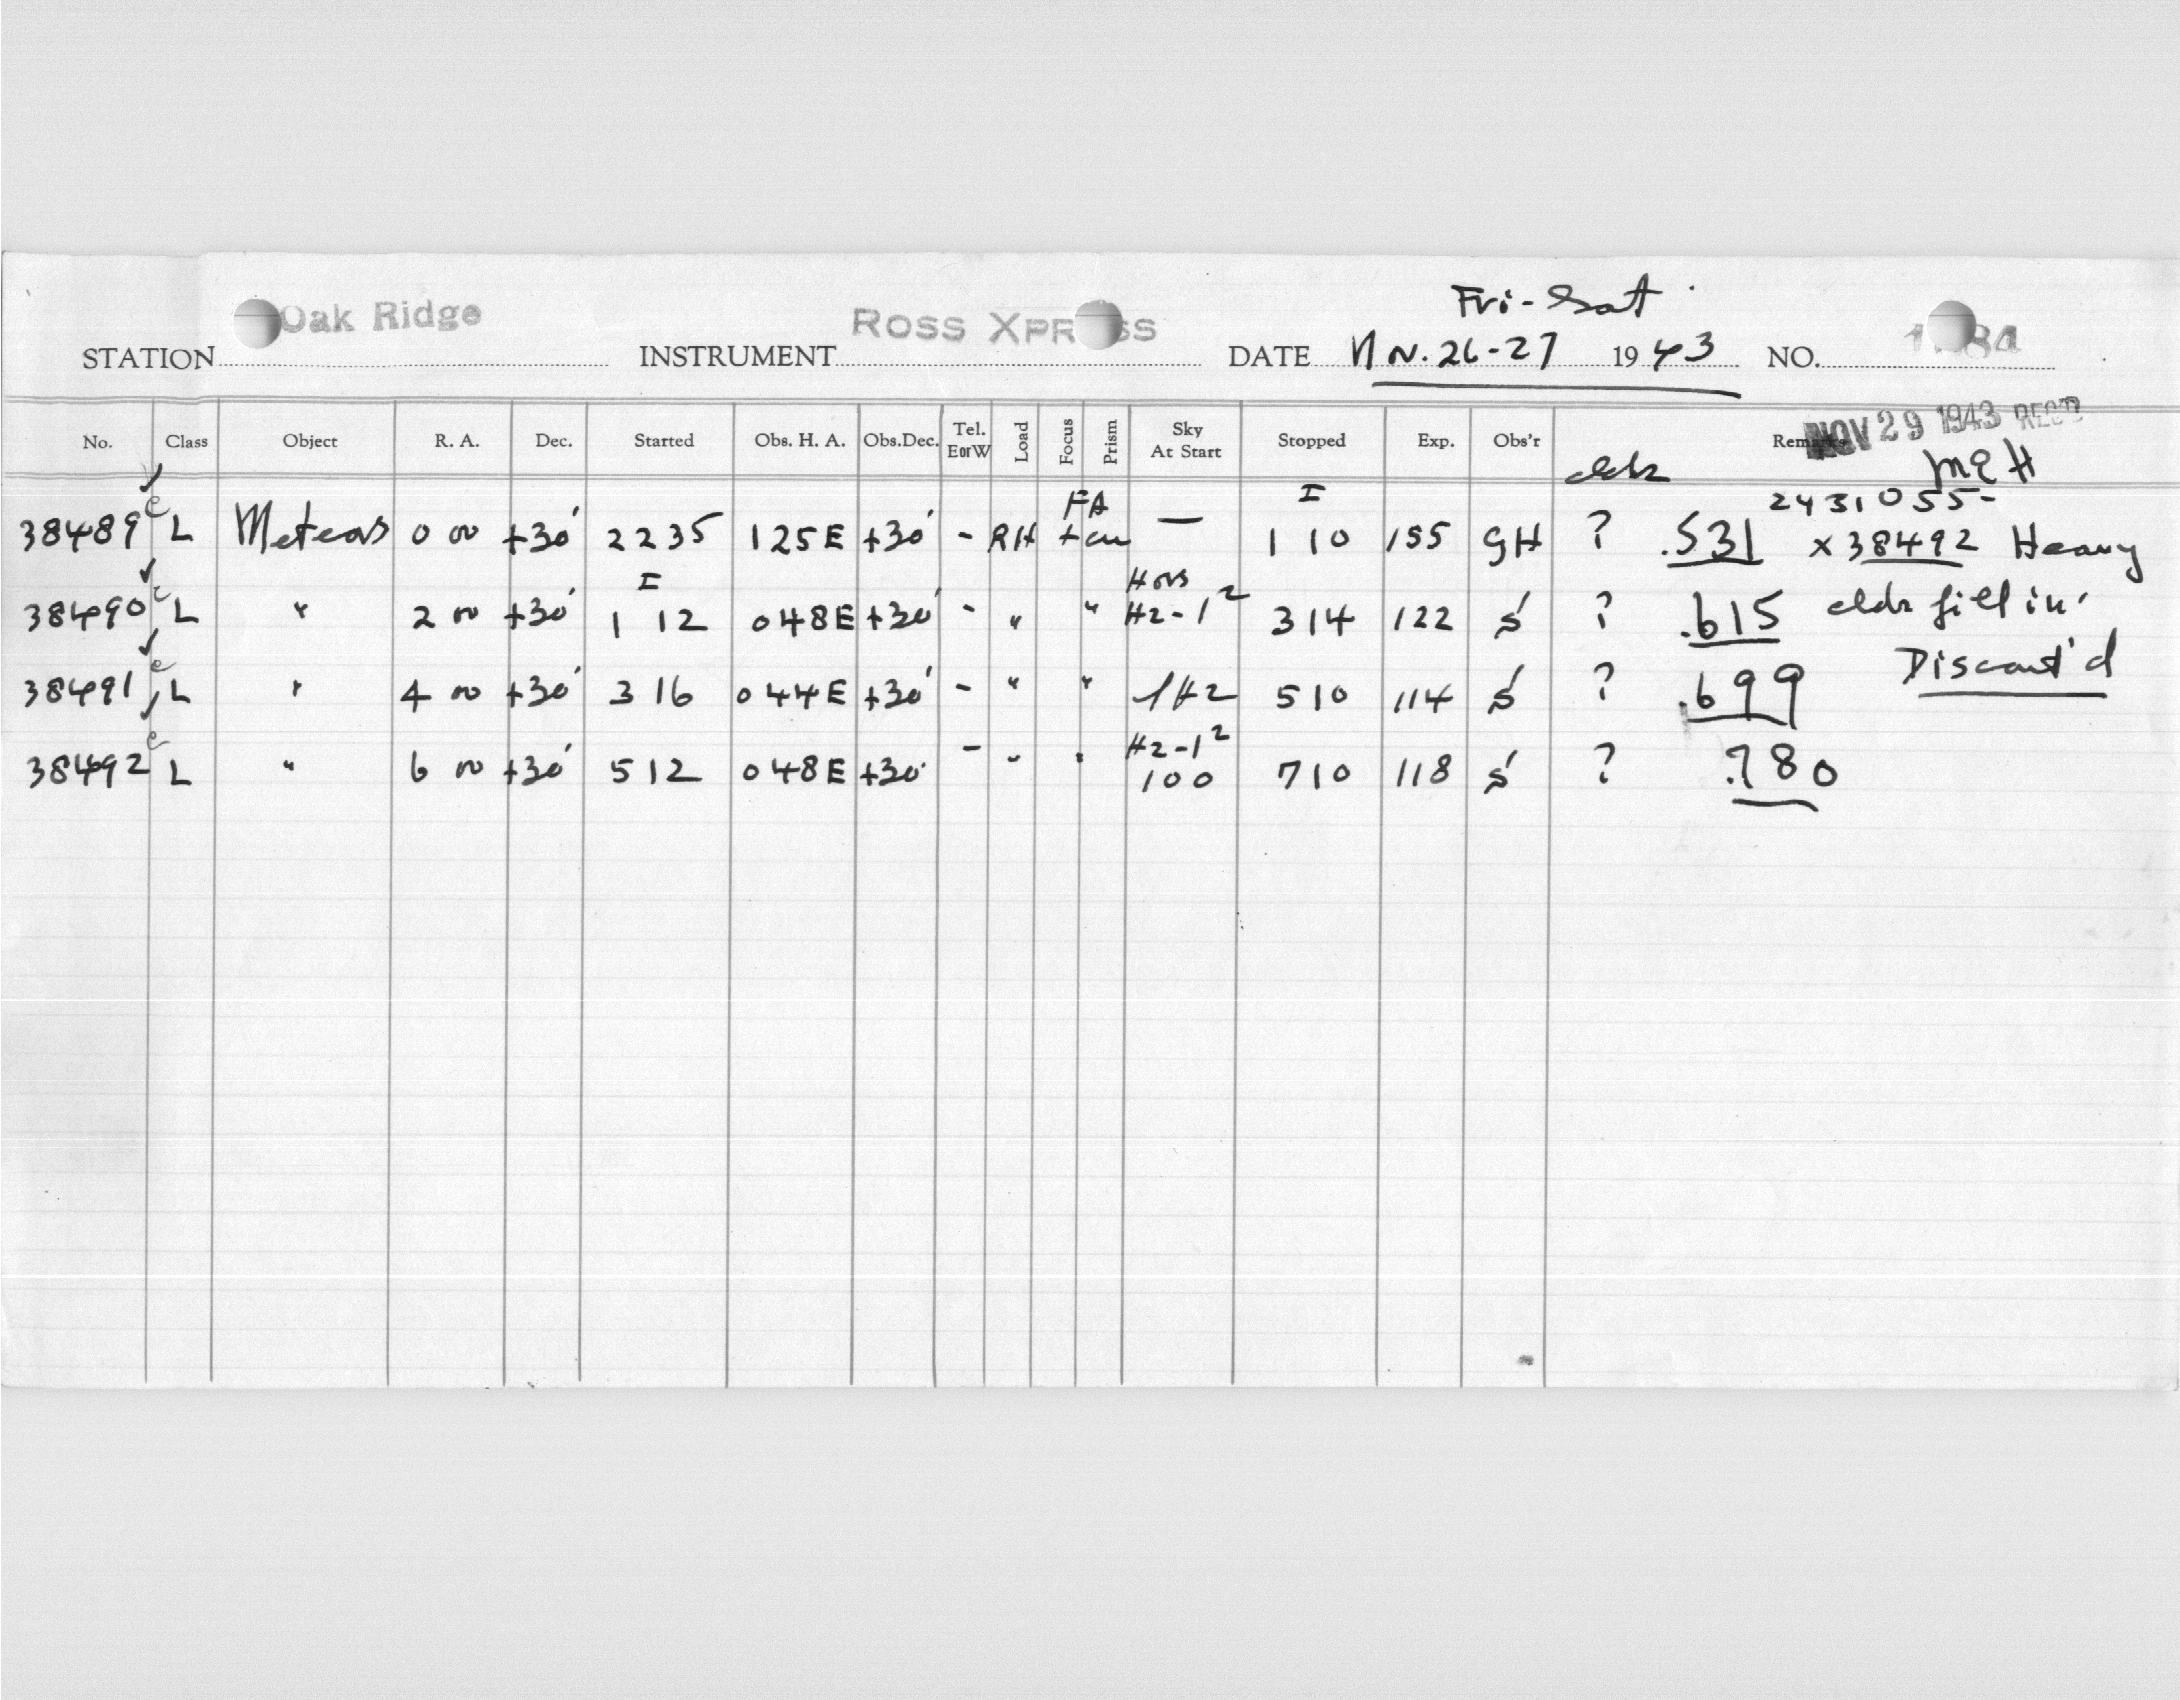 Fri-Sat
Oak Ridge
Ross Xpr ss
STATION INSTRUMENT DATE Nov. 26-27 1943 NO. 84
NOV 29 1943 REC'D
No. Class Object R. A. Dec. Started Obs. H. A. Obs.Dec. Tel. EorW Load Focus Prism Sky At Start Stopped Exp. Obs'r Remarks
clds MEH
FA I 2431055-
38489 c L Meteors 0 00 +30 2235 125E +30 - RH + cu — 1 10 155 GH ? .531 x 38492 Heavy
I H2-1²
38490 c L " 2 00 +30 1 12 048E +30 - " " 314 122 S ? .615 clds fill in.
38491 c L " 4 00 +30 3 16 044E +30 - " " 1H2 510 114 S ? .699 Discont'd
H2-1²
38492 c L " 6 00 +30 512 048E +30 - " " 100 710 118 S ? .780